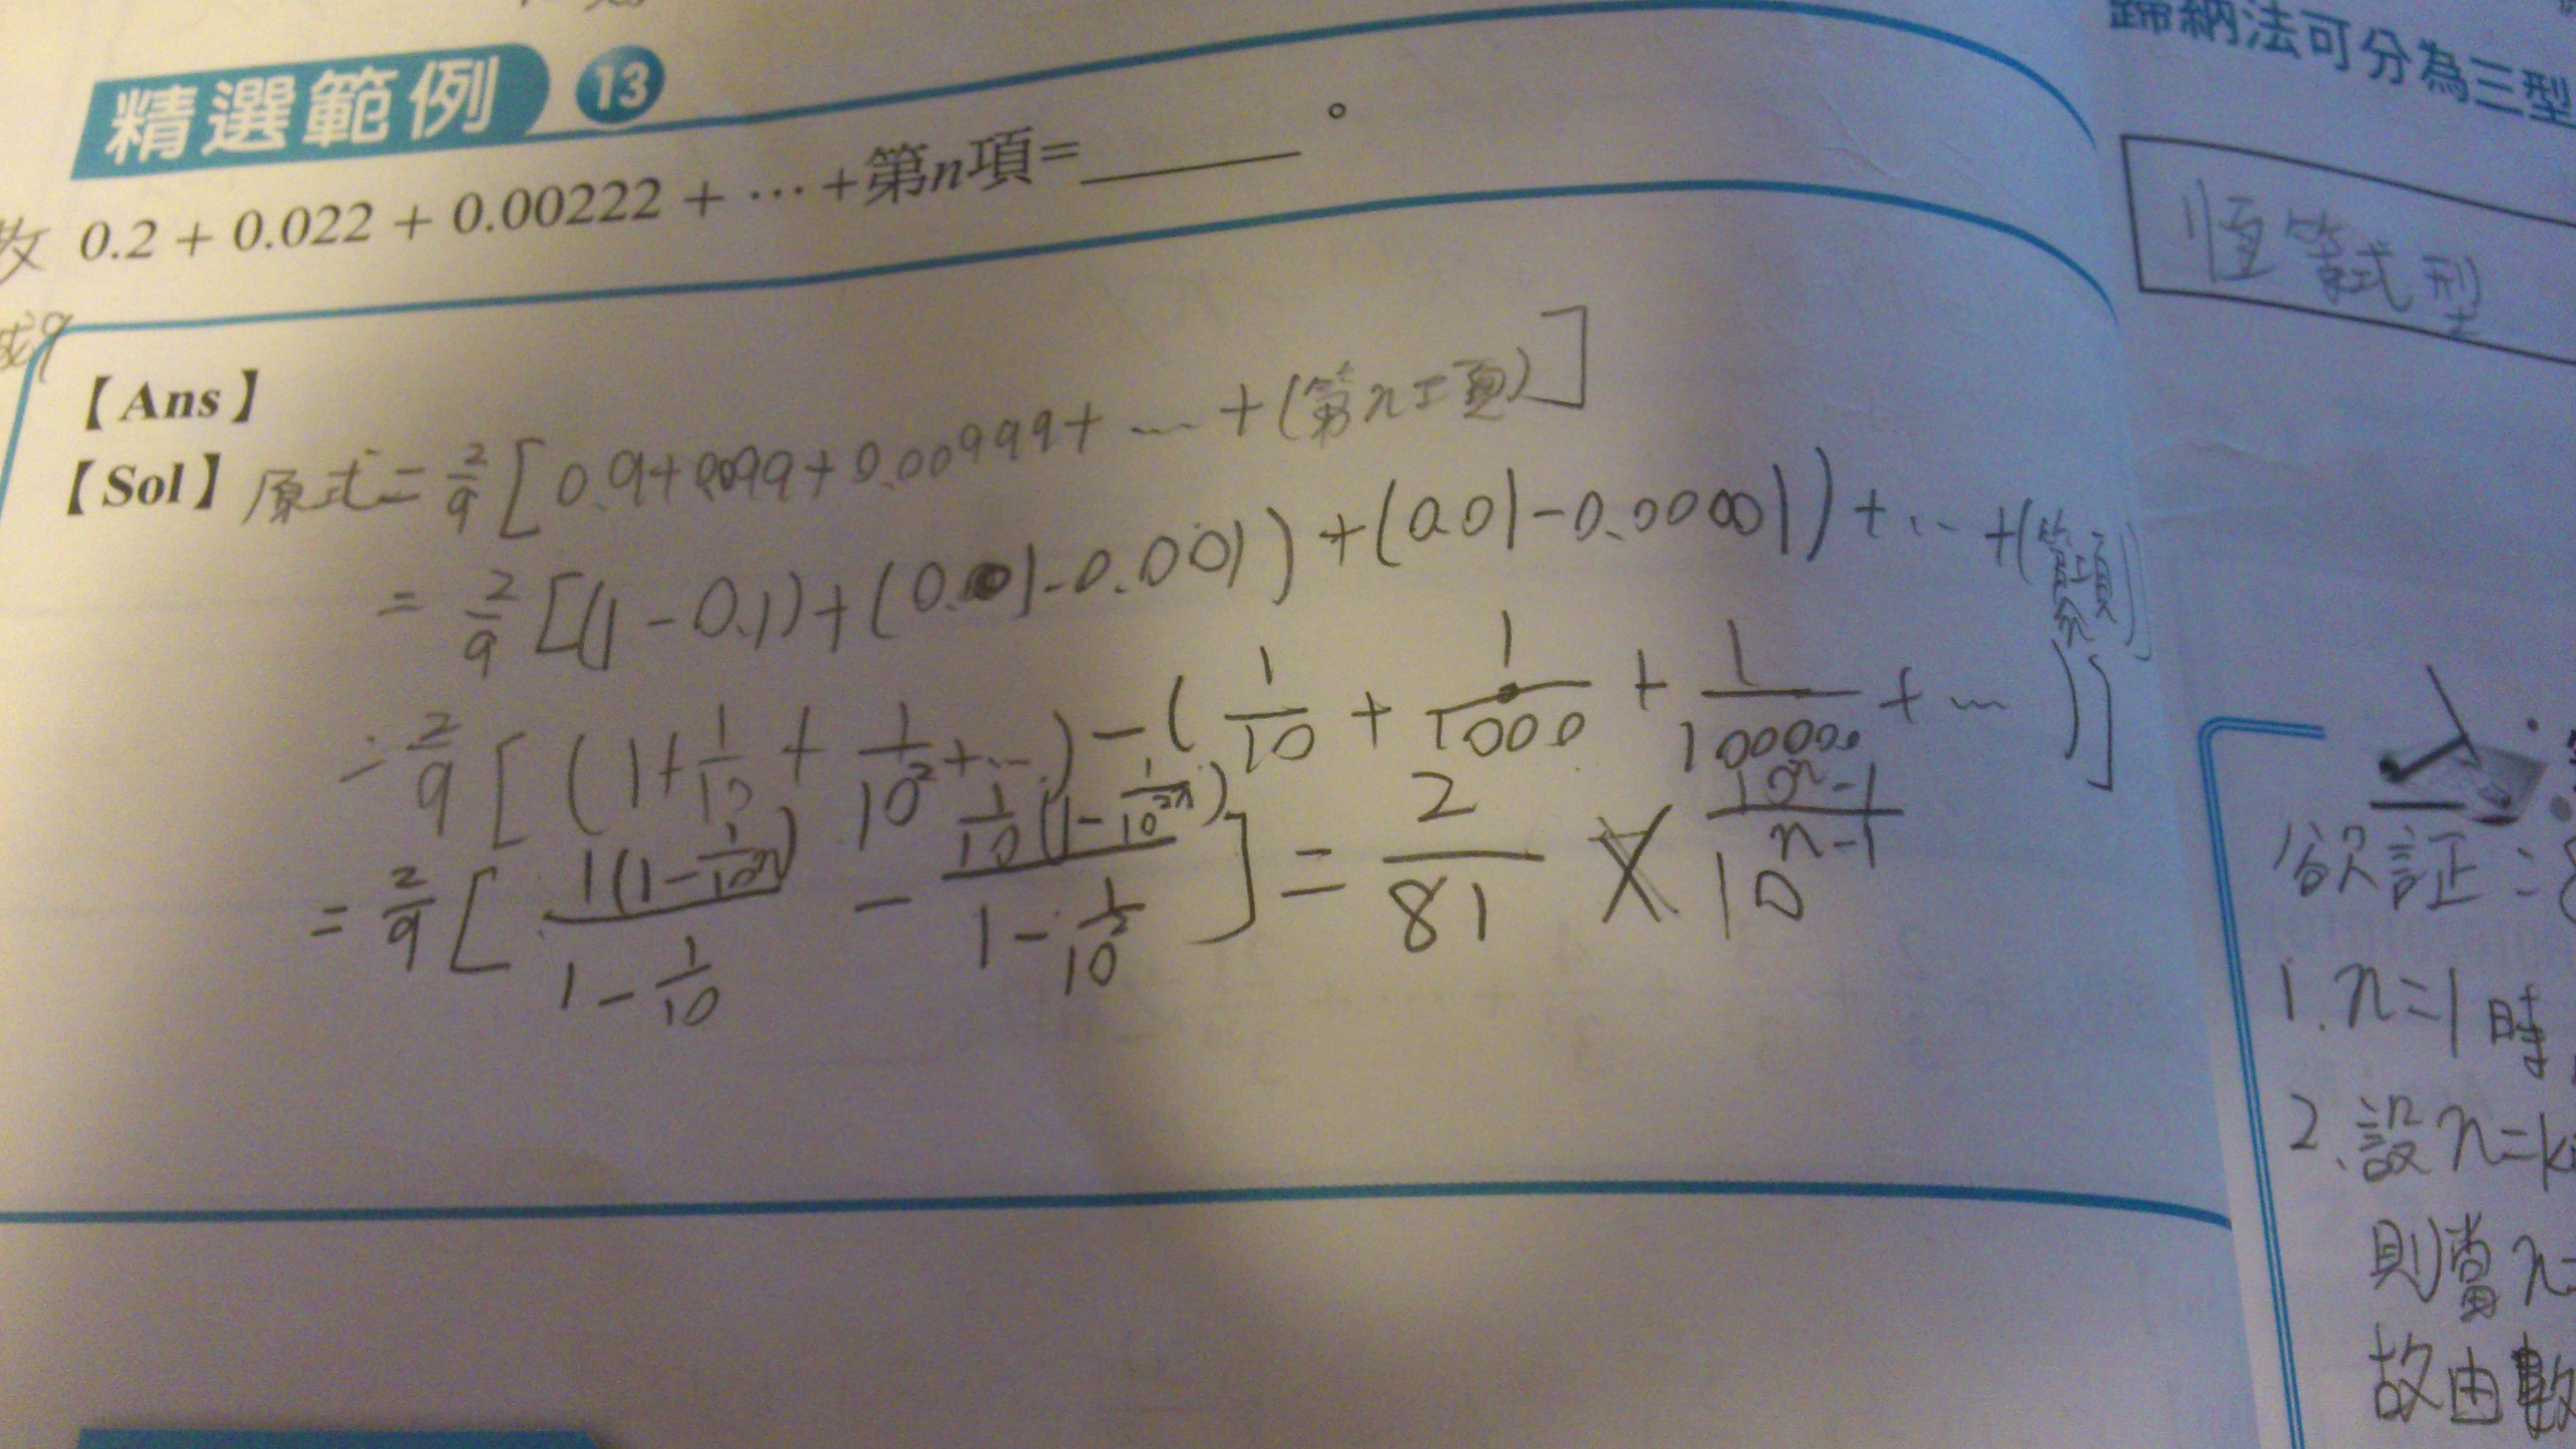 精選範例 13
0.2 + 0.022 + 0.00222 + ⋯ +第n項=______。
【Ans】
【Sol】原式=2/9[0.9+0.099+0.00999+⋯+(第n項)]
=2/9[(1-0.1)+(0.1-0.001)+(0.01-0.00001)+⋯+(第n項)
=2/9[(1+1/10+1/10²+⋯)-(1/10+1/1000+1/100000+⋯)]
=2/9[1(1-1/10ⁿ)/(1-1/10)-1/10(1-1/10²ⁿ)/(1-1/10²)]=2/81×(10ⁿ-1)/10ⁿ⁻¹
歸納法可分為三型
恆等式型
欲証:
1. n=1時
2. 設n=k
則當n=
故由數